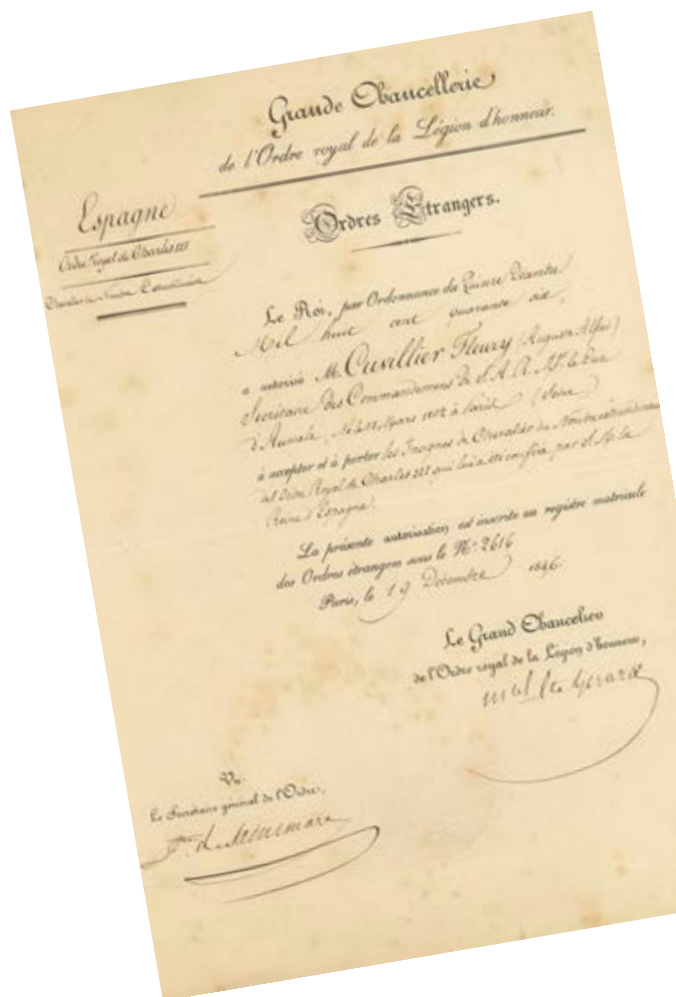 Grande Chancellerie
de l'Ordre royal de la Légion d'honneur.
Espagne
Ordre Royal de Charles III
Chevalier du Nombre Extraordinaire
Ordres Étrangers.
Le Roi, par Ordonnance du Quinze Décembre
Mil huit cent quarante six,
a autorisé M. Cuvillier Fleury (Auguste Alfred)
Secrétaire des Commandemens de S. A. R. Mgr le Duc
d'Aumale, Né le Mars 1802 à Paris (Seine)
à accepter et à porter les Insignes de Chevalier du Nombre extraordinaire
de l'Ordre Royal de Charles III qui lui a été conféré par S. M. la
Reine d'Espagne.
La présente autorisation est inscrite au registre matricule
des Ordres étrangers sous le No. 2616
Paris, le 19 Décembre 1846.
Le Grand Chancelier
de l'Ordre royal de la Légion d'honneur,
Mal Cte Gérard
Vu
Le Secrétaire général de l'Ordre,